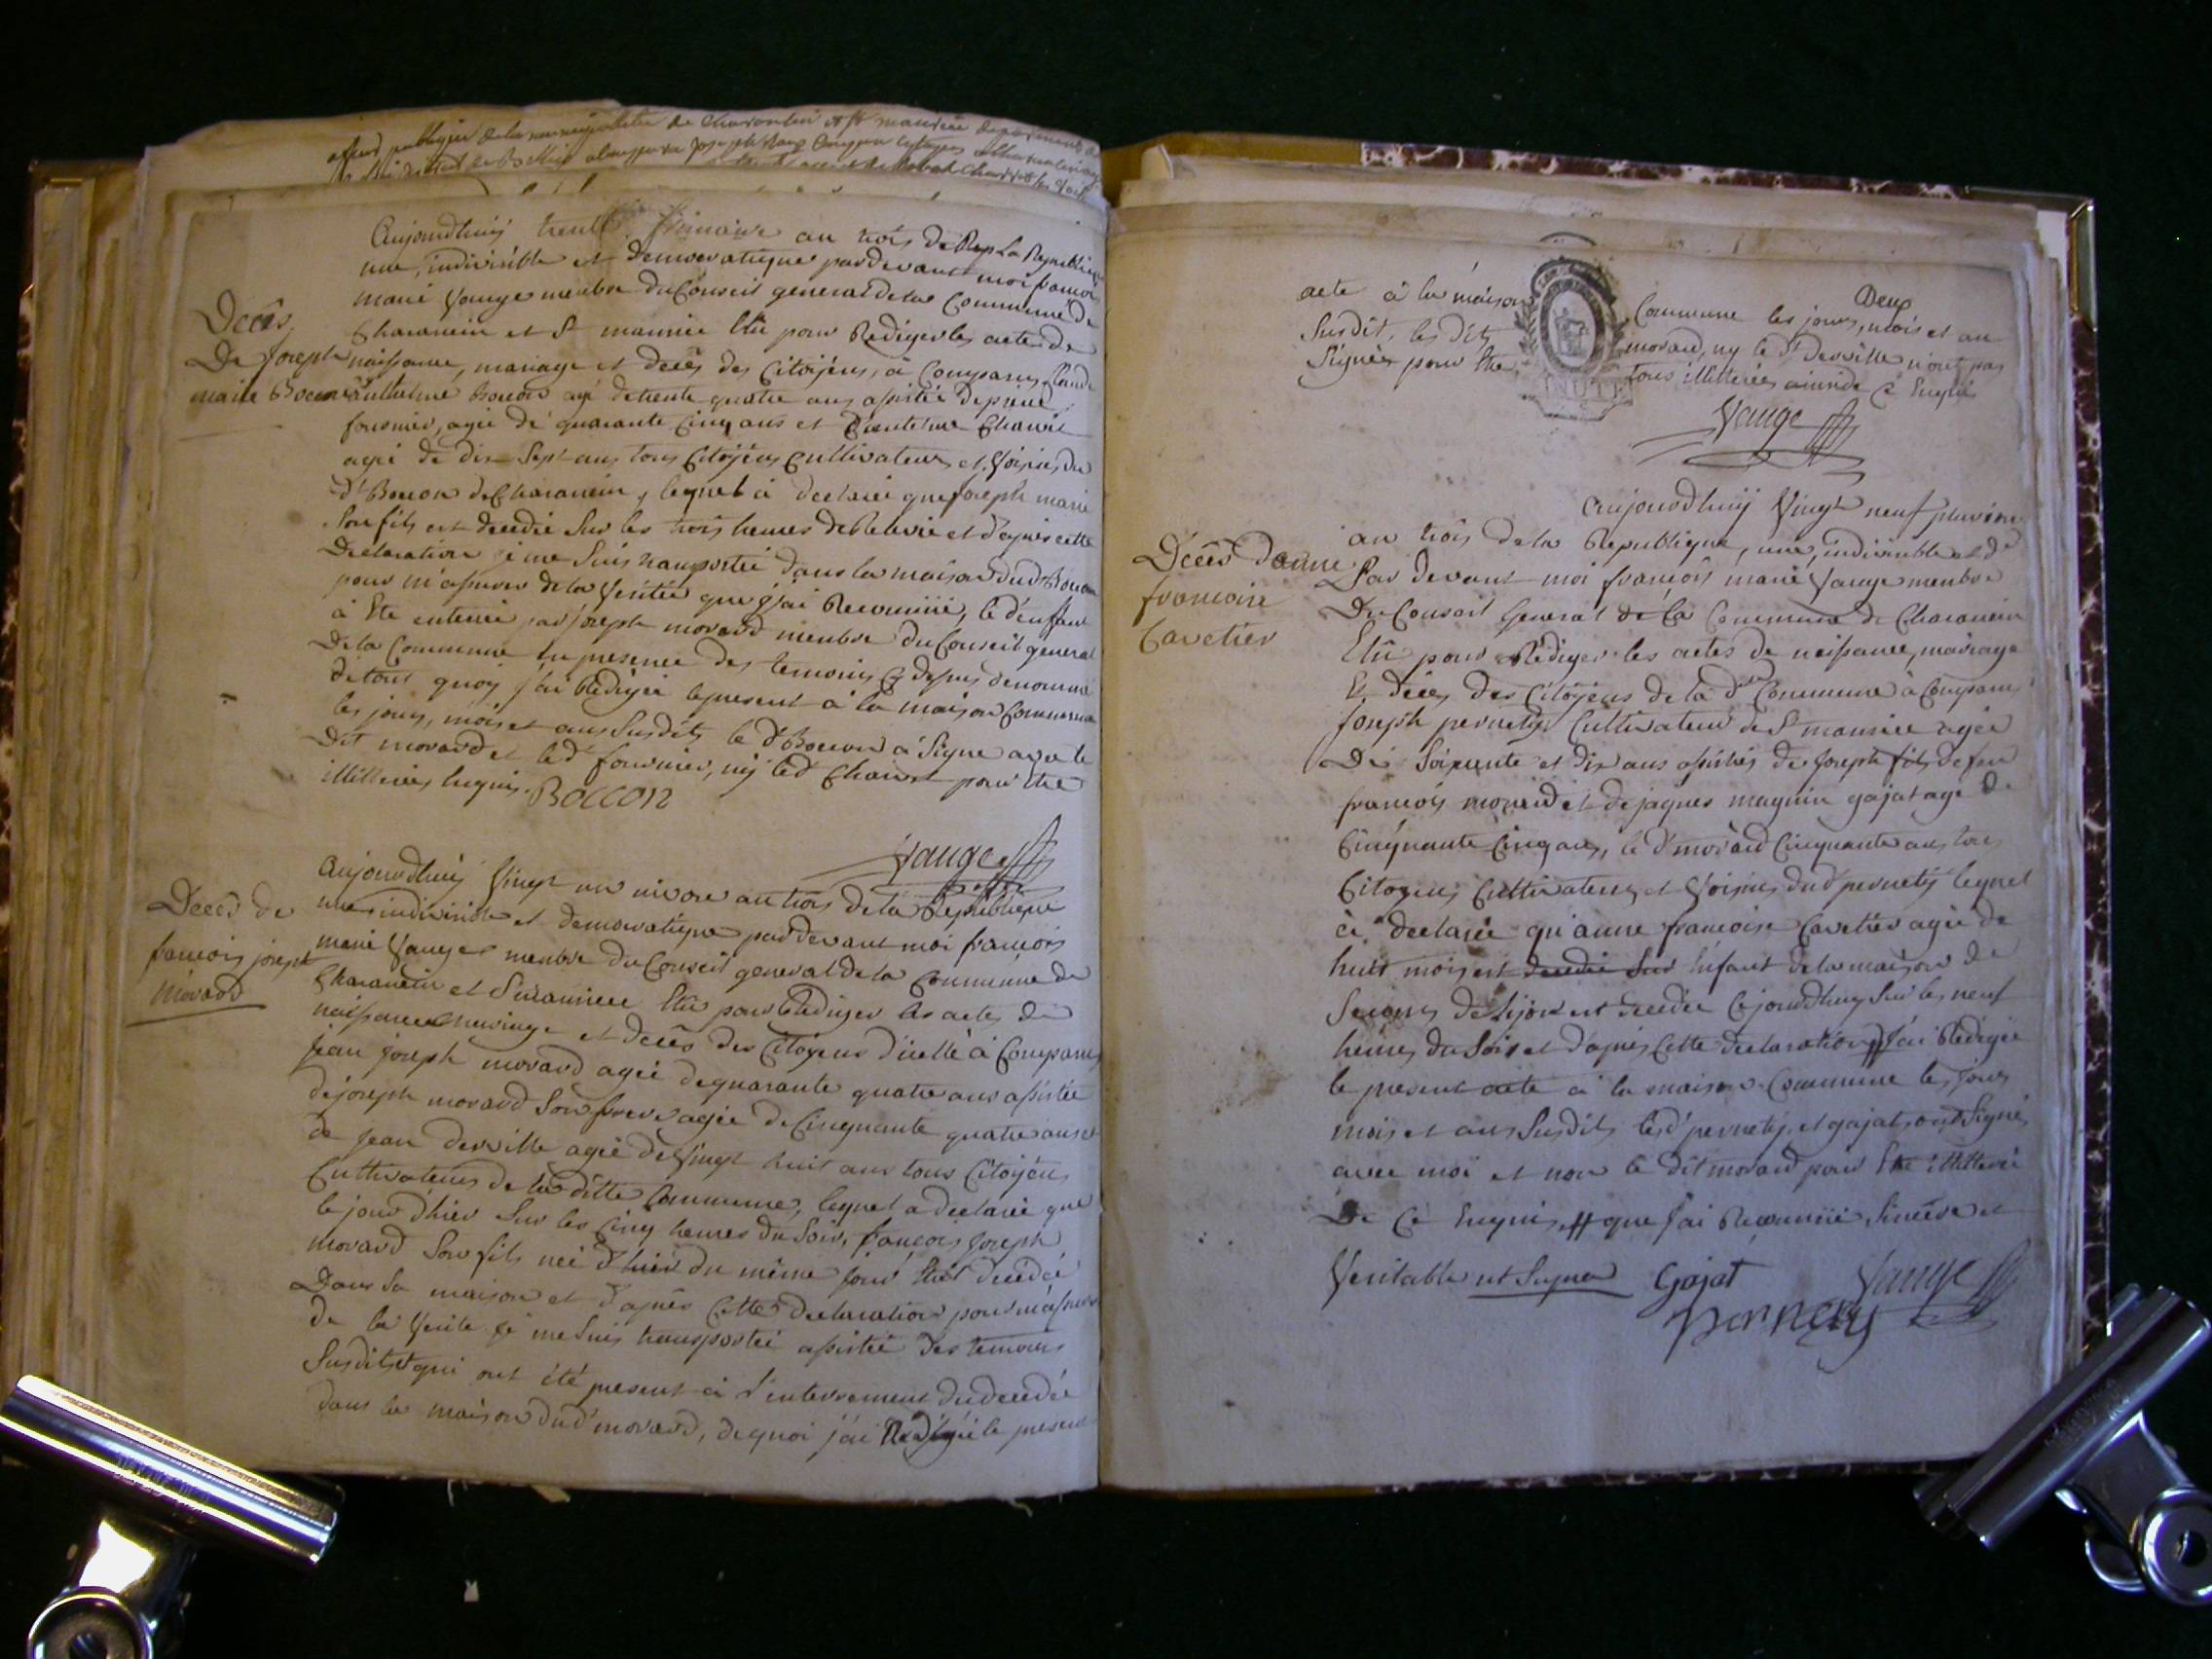 officier publique de la municipalitée de Charantin et st maurice departement
district de Belley
Aujourdhuij trente frimaire an trois de Rep La Republique
une, indivisible et democratique pardevant moi francois
marié Vauge menbre du Conseil general de la Commune de
Charancin et St maurice Elû pour Rediger les actes de
Decès
De Joseph
marie Bocon
naissance, mariage et decès des Citoÿens, à Comparu Claude
anthelme Bocon agé de trente quatre ans assistée de pierre
fournier, agée de quarante cinq ans et d'anthelme Charvet
agée de dix-Sept ans tous Citoÿens Cultivateurs et Voisins du
dt Bocon de Charancin, lequel à declarée que Joseph marie
son fils est decedée Sur les trois heures de Relevée et d'après cette
Declaration je me Suis transportée dans la maison dudt Bocon
pour m'assurer de la Veritée que j'ai Reconnüe, le d'enfant
à Ete enterrée par joseph morard menbre du Conseil general
De la Commune En presence des temoins Cy dessus denommé
de tout quoÿ j'ai Redigée le present à la maison Commune
les jours, mois et ans Susdits le dt Bocon à Signe avec le
Dit morard et led fournier, nÿ led Charvet pour être
illitterés Enquis. Boccon
Vauge
Aujourdhuij Vingt un nivose an trois de la Republique
Decès de
françois joseph
Morard
une indivisible et democratique par devant moi françois
marie Vauge menbre du Conseil general de la Commune de
Charancin et St maurice Elû pour Rediger les actes de
naissance mariage et decès des Citoÿens d'icelle à Comparus
Jean Joseph morard agée de quarante quatre ans assistée
de joseph morard Son frere agée de Cinquante quatre ans et
de Jean derville agée de Vingt huit ans tous Citoÿens
Cultivateurs de la ditte Commune, lequel a declarée que
le jour d'hier Sur les Cinq heures du Soir, françois Joseph
morard Son fils neé d'hier du même jour Etoit decedée
Dans Sa maison et d'après Cette declaration pour m'assurer
de la Verite je me Suis transportée assistée des temoins
Susdits qui ont été present à l'enterrement du decedée
dans la maison dudt morard, de quoi j'ai Redigée le present
acte à la maison Commune les jours, mois et an
Deux
Susdit, les dits morard, ny le dt derville n'ont pas
Signés pour Etre tous illitterés ainside ce Enquis
Vauge
Aujourdhuij Vingt neuf pluviose
Décès danne
francoise
Cavetier
an trois de la Republique, une, indivisible et de
Par devant moi françois marie Vauge menbre
Du Conseil General de la Commune de Charancin
Elû pour Rediger les actes de naissance, mariage
Et Décès des Citoÿens de la dte Commune à Comparu
Joseph pernety Cultivateur de St maurice agée
De Soixante et dix ans assistés de Joseph fils de feu
françois morard et de jaques magnin gajat agé de
Cinquante Cinq ans, le dt morard Cinquante ans tous
Citoyens Cultivateurs et Voisins dudt pernety lequel
à declarée qu'anne francoise Cavetier agée de
huit mois est decedée Sur Enfant de la maison de
Secours de Lijon est decedée Cejourdhuy Sur les neuf
heures du Soir et d'après Cette declaration J'ai Redigée
le present acte à la maison Commune les jours
mois et ans Susdits led pernety et gajat ont Signé
avec moi et non le dit morard pour Etre illitteré
De Ce Enquis # que J'ai Reconnüe Sincère et
Veritable ut Supra Gajat Vauge
Pernety